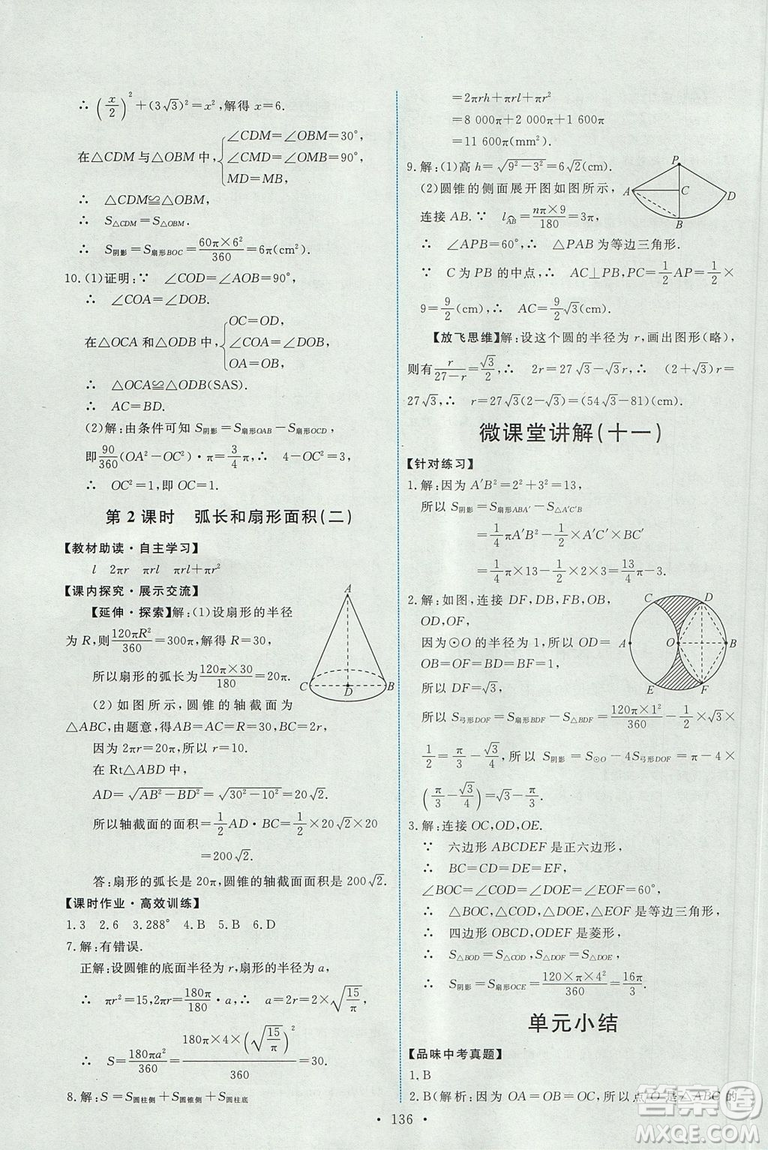 ∴ (x/2)²+(3√3)²=x²,解得 x=6.
在△CDM 与△OBM 中,{∠CDM=∠OBM=30°, ∠CMD=∠OMB=90°, MD=MB=
∴ △CDM≌△OBM
∴ S△CDM=S△OBM
∴ S阴影=S扇形BOC=60π×6²/360=6π(cm²).
10.(1)证明:∵ ∠COD=∠AOB=90°,
∴ ∠COA=∠DOB.
在△OCA 和△ODB 中,{OC=OD, ∠COA=∠DOB, OA=OB
∴ △OCA≌△ODB(SAS).
∴ AC=BD.
(2)解:由条件可知 S阴影=S扇形OAB-S扇形OCD,
即 90/360(OA²-OC²)·π=3/4π,∴ 4-OC²=3,
∴ OC²=1,∴ OC=1.
第 2 课时 弧长和扇形面积(二)
【教材助读·自主学习】
l 2πr πrl πrl+πr²
【课内探究·展示交流】
【延伸·探索】解:(1)设扇形的半径
为 R,则120πR²/360=300π,解得 R=30,
所以扇形的弧长=120π×30/180=20π.
(2)如图所示,圆锥的轴截面为
△ABC,由题意,得AC=AB=R,BC=2r,
因为 2πr=20π,所以 r=10.
在 Rt△ABD 中,
AD=√(AB²-BD²)=√(30²-10²)=20√2.
所以轴截面的面积=1/2AD·BC=1/2×20√2×20
=200√2.
答:扇形的弧长是 20π,圆锥的轴截面面积是200√2.
A
C D B
【课时作业·高效训练】
1.3 2.6 3.288° 4.B 5.B 6.D
7.解:有错误.
正解:设圆锥的底面半径为 r,扇形的半径为 a,
∴ πr²=15,2πr=180π/180·a,∴ a=2r=2√(15/π)
∴ S=180πa²/360=180π×4×(√(15/π))²/360=30.
8.解:S=S圆柱侧+S圆锥侧+S圆柱底
=2πrh+πrl+πr²
=8 000π+2 000π+1 600π
=11 600π(mm²).
9.解:(1)高 h=√(9²-3²)=6√2(cm).
(2)圆锥的侧面展开图如图所示,
连接 AB.∵ l=nπ×9/180=3π,
∴ ∠APB=60°,∴ △PAB 为等边三角形.
∵ C 为 PB 的中点,∴ AC⊥PB,PC=1/2AP=1/2×
9=9/2(cm),∴ AC=9/2√3(cm).
P
A C D
B
【放飞思维】解:设这个圆的半径为 r,画出图形(略),
则有r/(27-r)=√3/2,∴ 2r=27√3-√3r,∴ (2+√3)r=
27√3,∴ r=27√3(2-√3)=(54√3-81)(cm).
微课堂讲解(十一)
【针对练习】
1.解:因为 A′B²=2²+3²=13,
所以 S阴影=S扇形ABA′-S△A′C′B
=1/4πA′B²-1/2×A′C′×BC′
=1/4π×13-1/2×3×2=13/4π-3.
2.解:如图,连接 DF,DB,FB,OB,
OD,OF,
因为⊙O 的半径为 1,所以 OF=1.
所以 DF=√3,
所以 S弓形DOF=S扇形BDF-S△BDF=120π×1²/360-1/2×√3×
1/2=π/3-√3/4,所以 S阴影=S⊙O-S弓形DOF=π-2×
(π/3-√3/4)=π/3+√3/2.
D
A O B
E F
3.解:连接 OC,OD,OE.
∵ 六边形 ABCDEF 是正六边形,
∴ BC=CD=DE=OB=OC=OD=OE=4,
∠BOC=∠COD=∠DOE=60°.
∴ △BOC,△COD,△DOE 是等边三角形,
∴ 四边形 OBCD,OCDE 是菱形,
∴ S△BOD=S△COD=S△DOE,
∴ S阴影=S扇形OCE=120π×4²/360=16π/3.
单元小结
【品味中考真题】
1.B
2.B(解析:因为 OA=OB=OC,所以点 O 是△ABC 的
136
作业帮
MXQE.COM